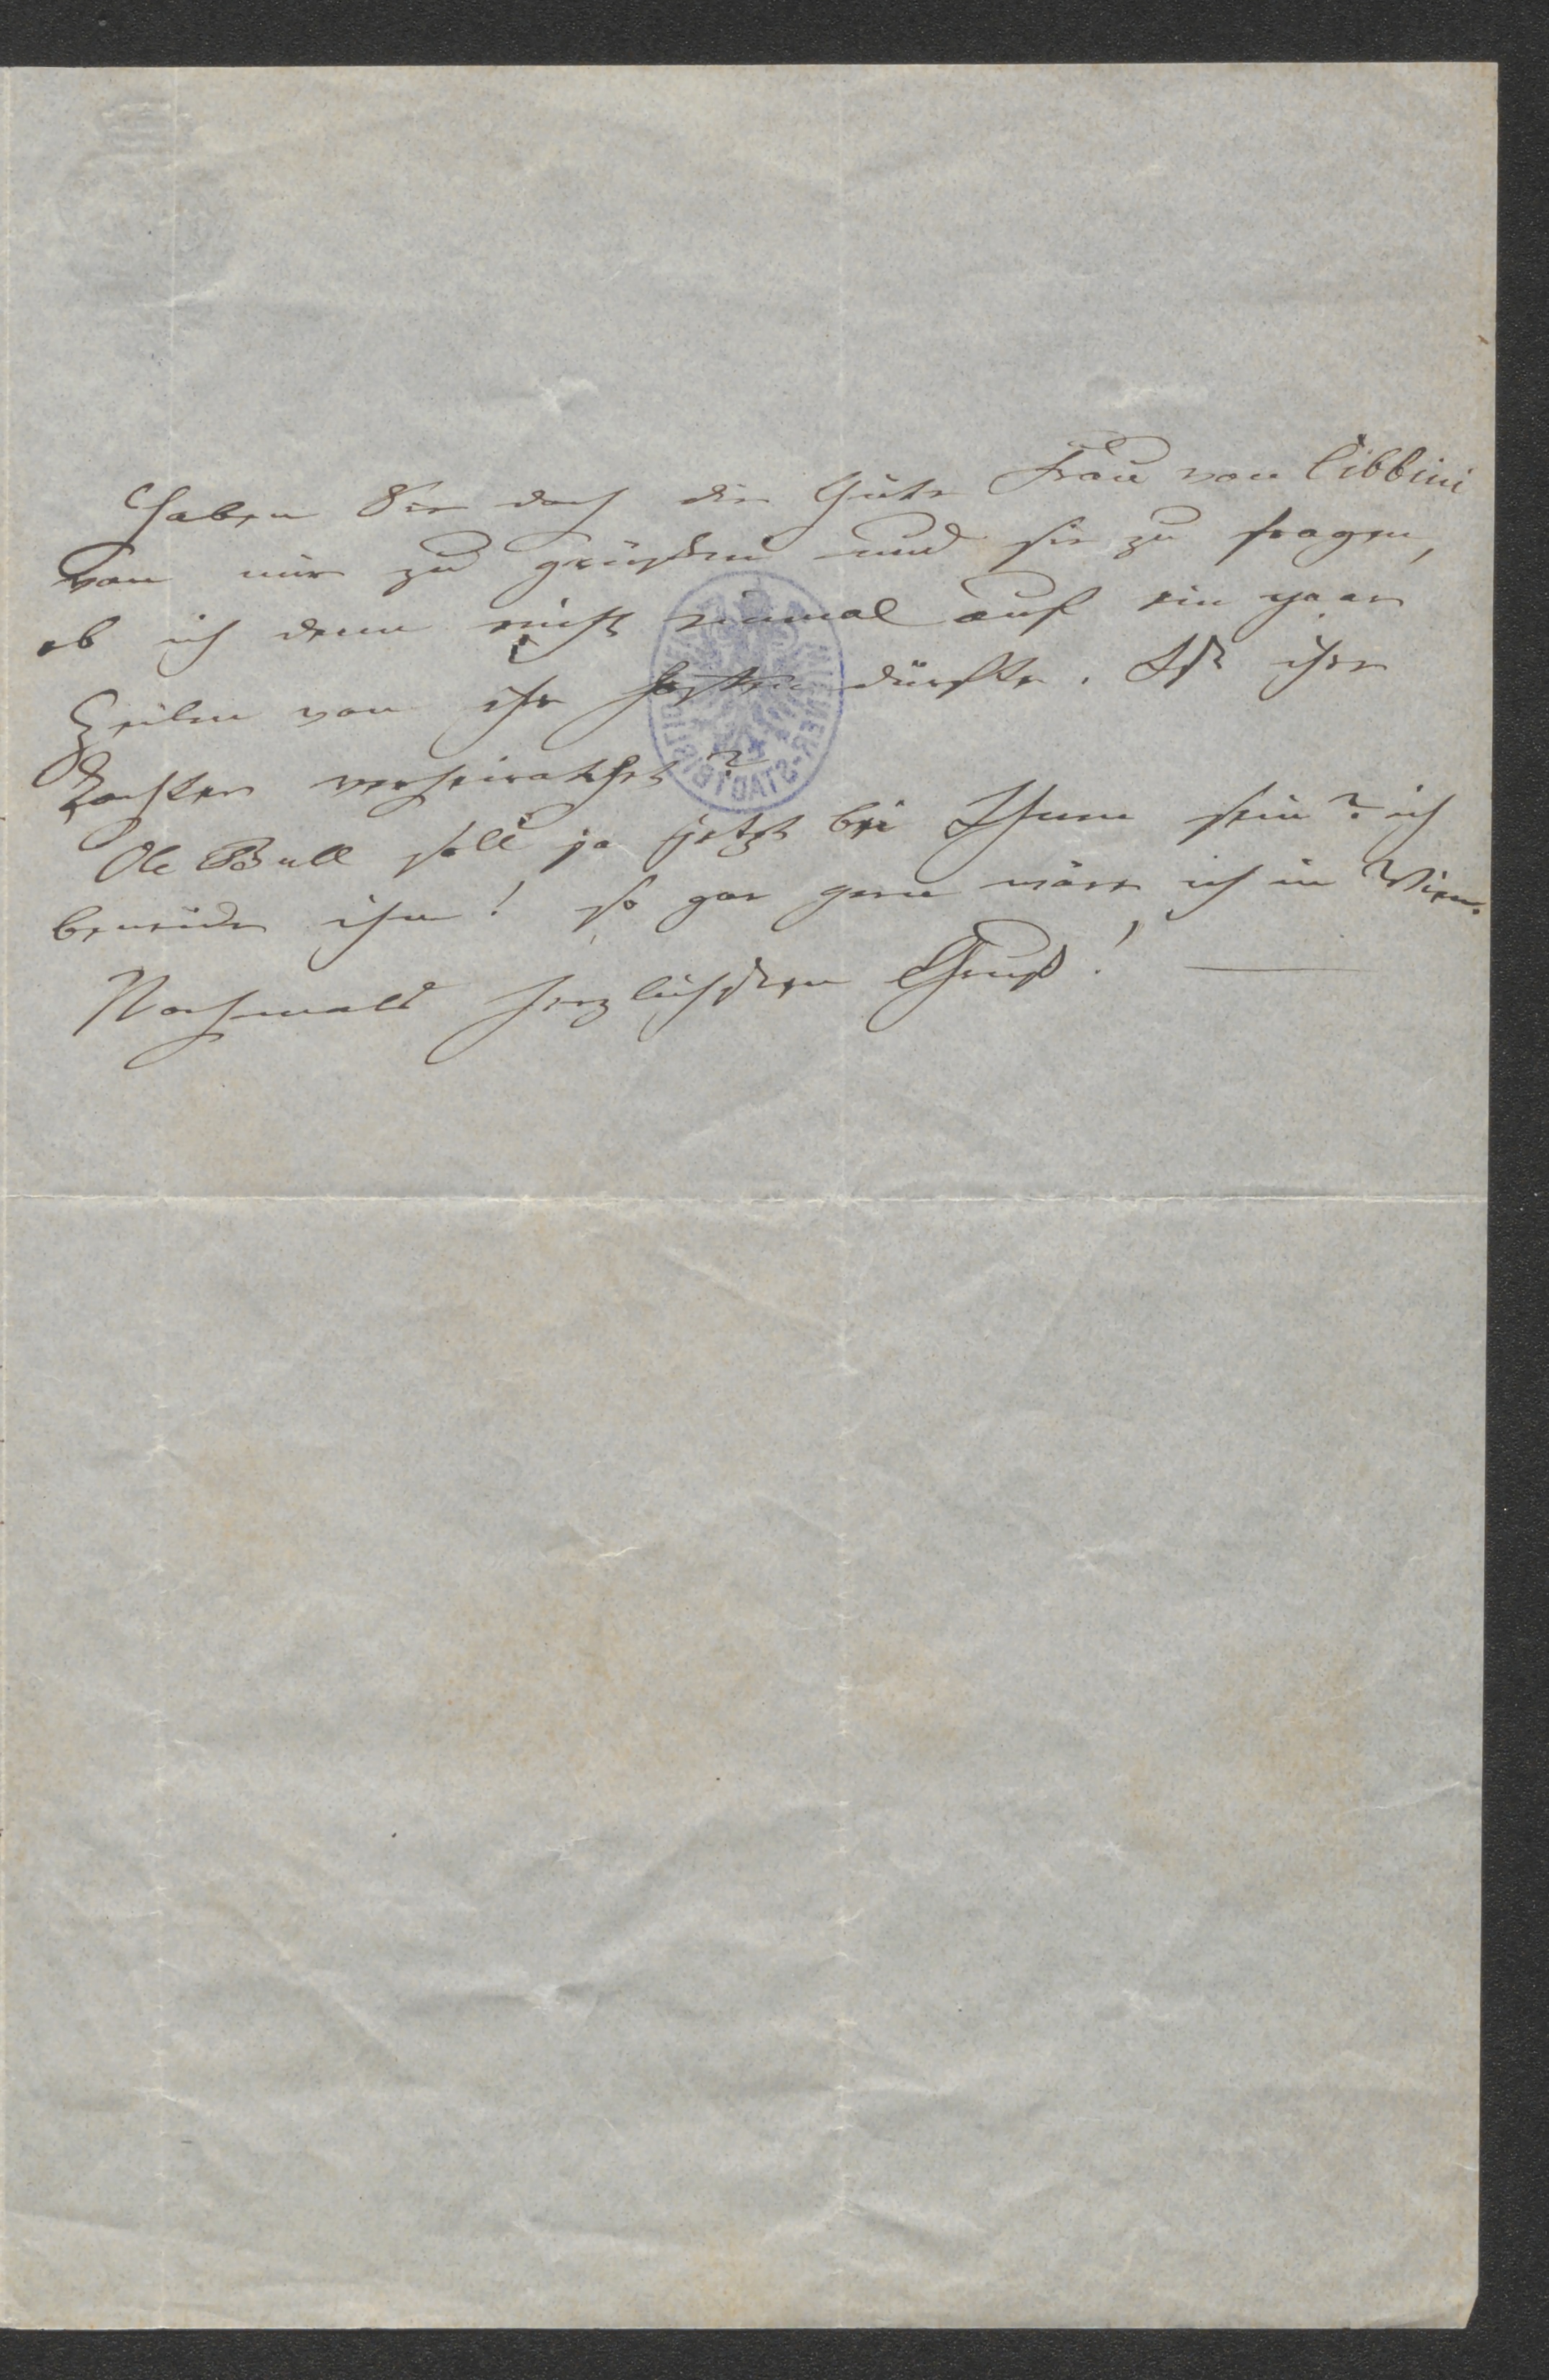 Haben Sie doch die Güte Frau von Cibbini
von mir zu grüßen und sie zu fragen,
ob ich denn nicht einmal auf ein paar
Zeilen von ihr hoffen dürfte. Ist ihre
Tochter verheirathet?
Ole Bull soll ja jetzt bei Ihnen sein? ich
beneide ihn! so gar gern wäre ich in Wien.
Nochmals herzlichsten Gruß! —